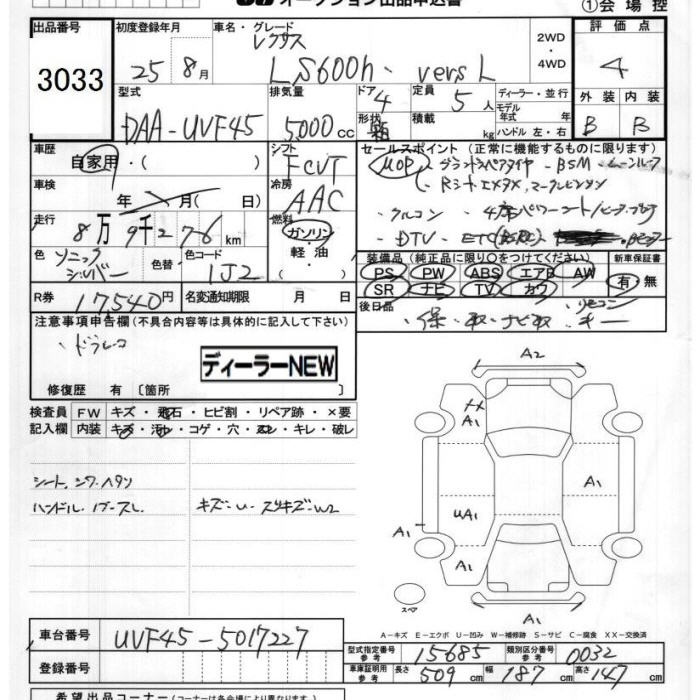 オークション出品申込書
①会場控
出品番号
3033
初度登録年月
25 8月
車名・グレード
レクサス
LS600h・versL
2WD
・
4WD
評価点
4
型式
DAA-UVF45
排気量
5,000cc
ドア
4
形状
箱
定員
5人
積載
kg
ディーラー・並行
モデル
年式 年
ハンドル 左・右
外装 内装
B B
車歴
自家用・( )
シフト
FCVT
セールスポイント (正常に機能するものに限ります)
MOP グランドスペアタイヤ・BSM・ムーンルーフ
クルコン
DTV・ETC
車検
年 月( 日)
冷房
AAC
走行
8万9千276km
燃料
ガソリン
・
軽油
・
( )
色
ソニック
シルバー
色替
色コード
1J2
装備品 (純正品に限り○をつけてください)
PS PW ABS エアB AW
SR ナビ TV カワ
新車保証書
有・無
R券
17,540円
名変通知期限 月 日
後日品
・保・取・ナビ取・キー
リモコン
注意事項申告欄(不具合内容等は具体的に記入して下さい)
・ドラレコ
ディーラーNEW
修復歴 有 〔箇所 〕
検査員
記入欄
FW キズ・飛石・ヒビ割・リペア跡・×要
内装 キズ・汚れ・コゲ・穴・スレ・キレ・破レ
シート、シワ、ヘタリ
ハンドル
キズ〜U・スリキズ〜W2
A2
XX
A1
A1
UA1
A1
A1
A1
スペア
A1
A-キズ E-エクボ U-凹み W-補修跡 S-サビ C-腐食 XX-交換済
車台番号
UVF45-5017227
登録番号
型式指定番号
参考
15685
類別区分番号
参考
0032
車庫証明用
参考
長さ 509cm 幅 187cm 高さ 147cm
希望出品コーナー(コーナーは各会場により異なります)